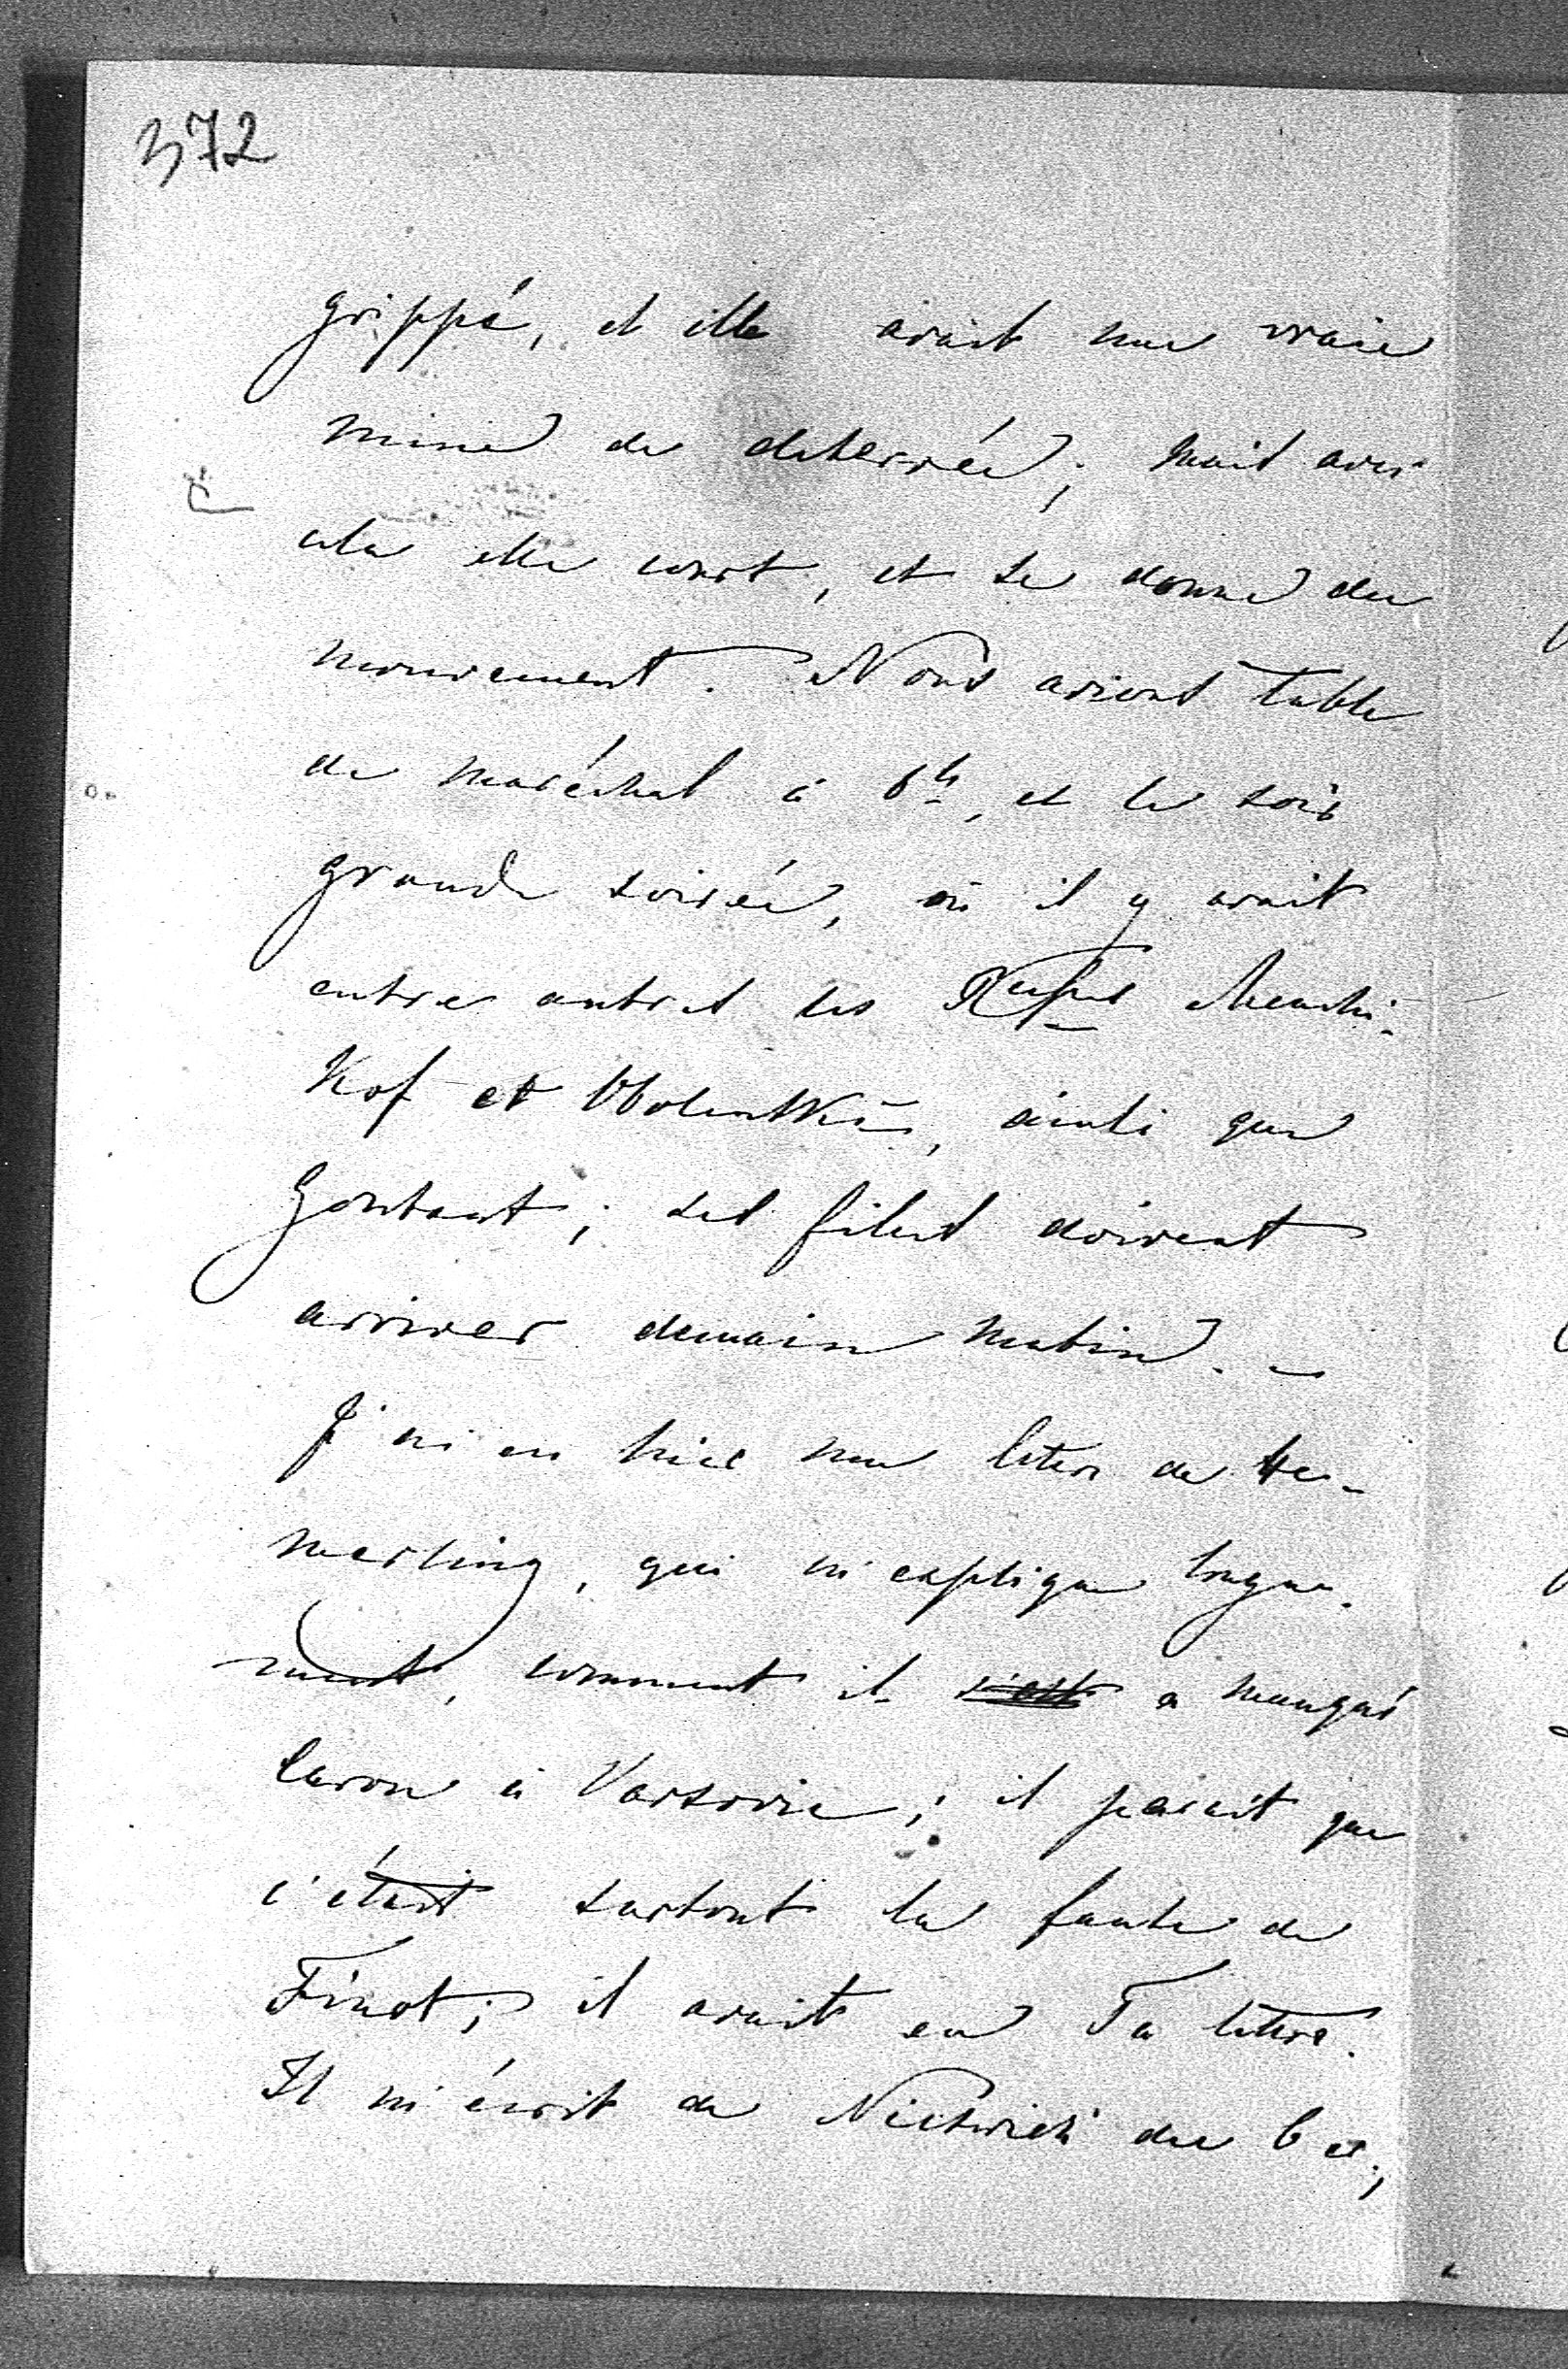 372
grippé, et elle avait une vraie
mine de deterrée; mais avec
cela elle court, et se donne du
mouvement. Nous avions table
de maréchal à 6h, et le soir
grande soirée, où il y avait
entre autres les Menchi-
kof et Obolensky, ainsi que
Gontaut; ses filles doivent
arriver demain matin. –
J'ai eu hier une lettre de He-
merling, qui m'explique longue-
ment, comment il a manqué
Caron à Varsovie; il parait que
c'était surtout la faute de
Finot; il avait eu Ta lettre.
Il m'écrit de Nieswiez du 6 et;